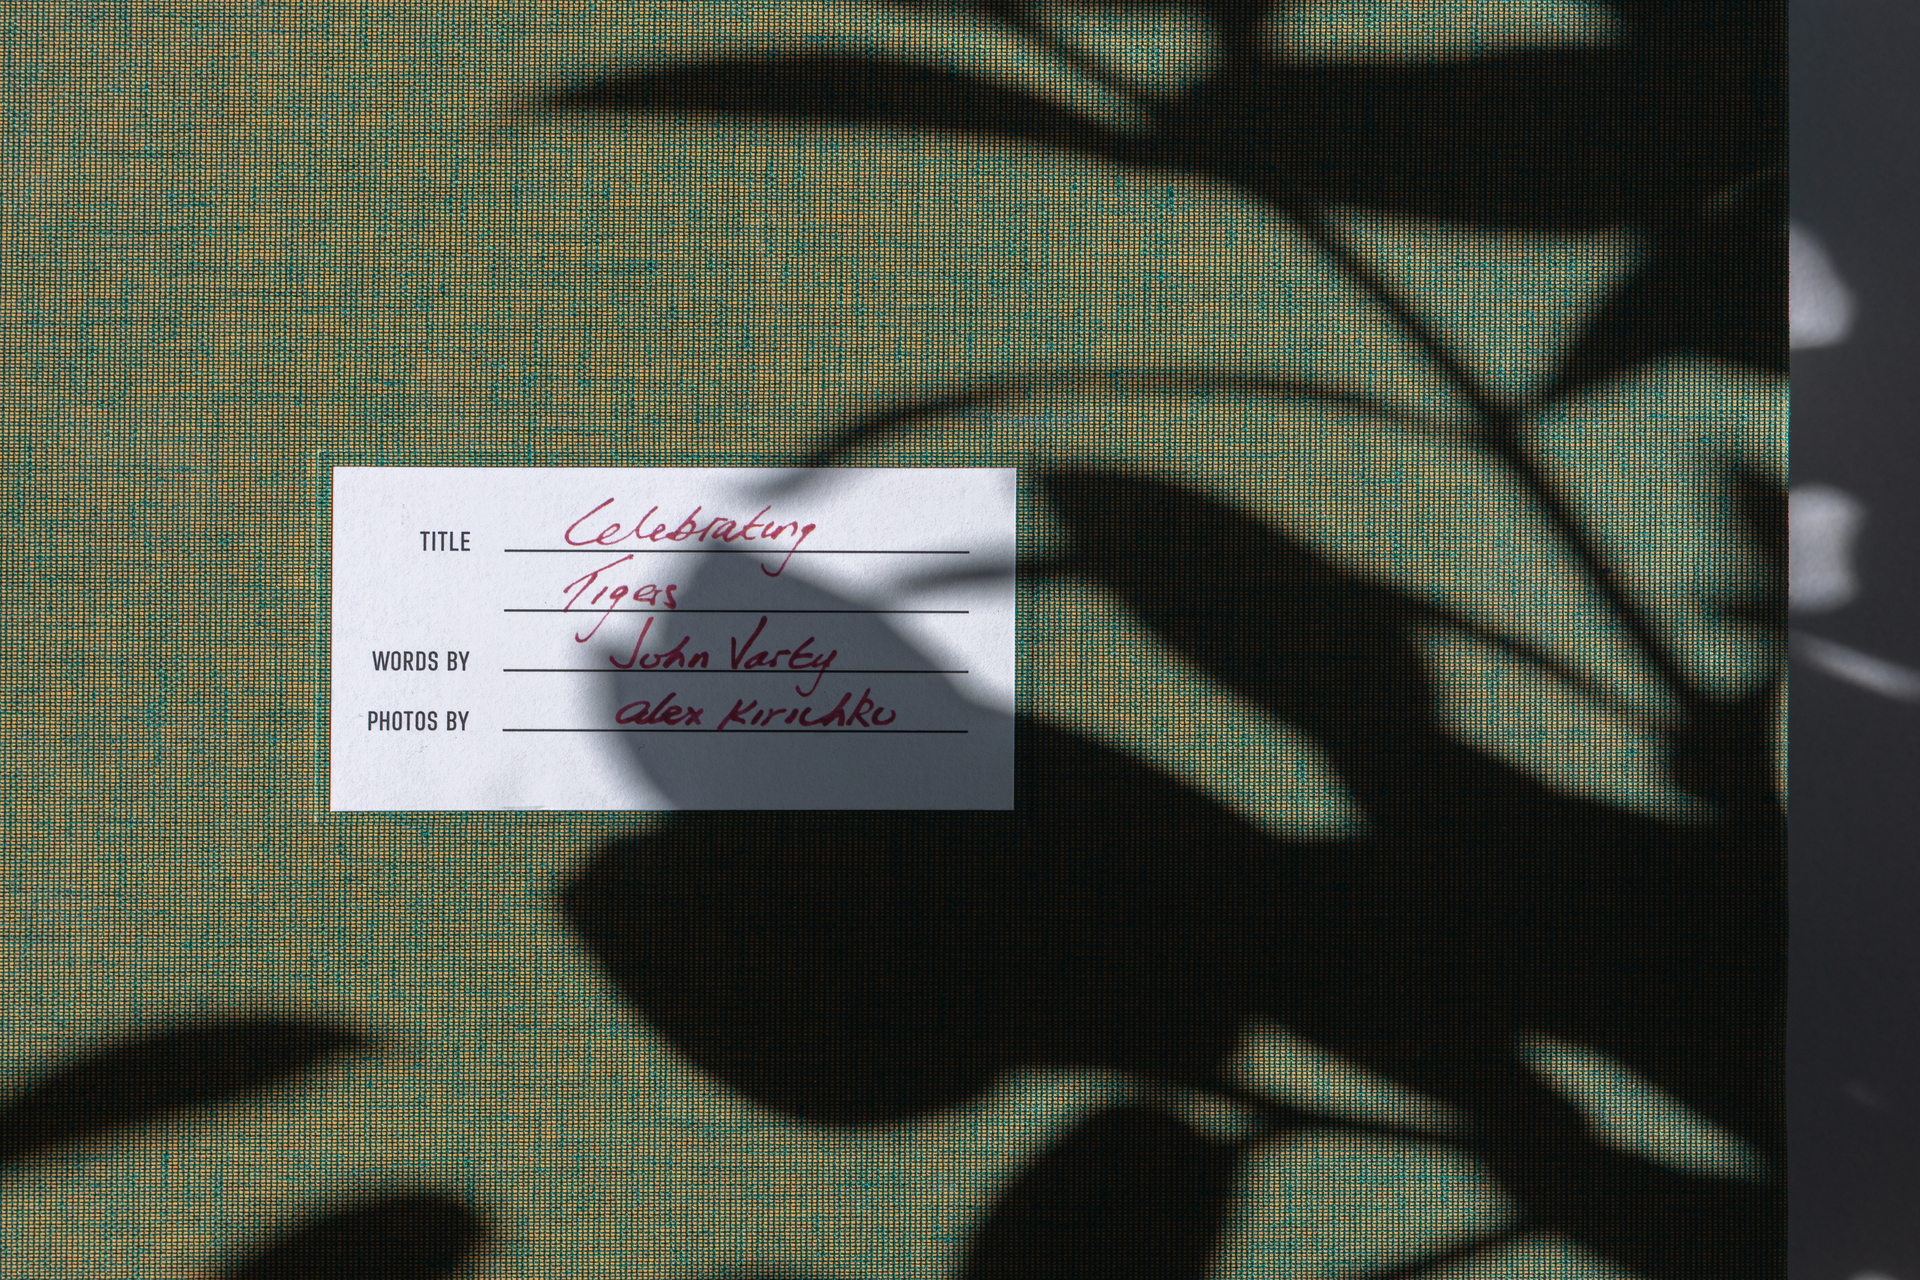 TITLE Celebrating
Tigers
WORDS BY John Varty
PHOTOS BY alex Kirichko